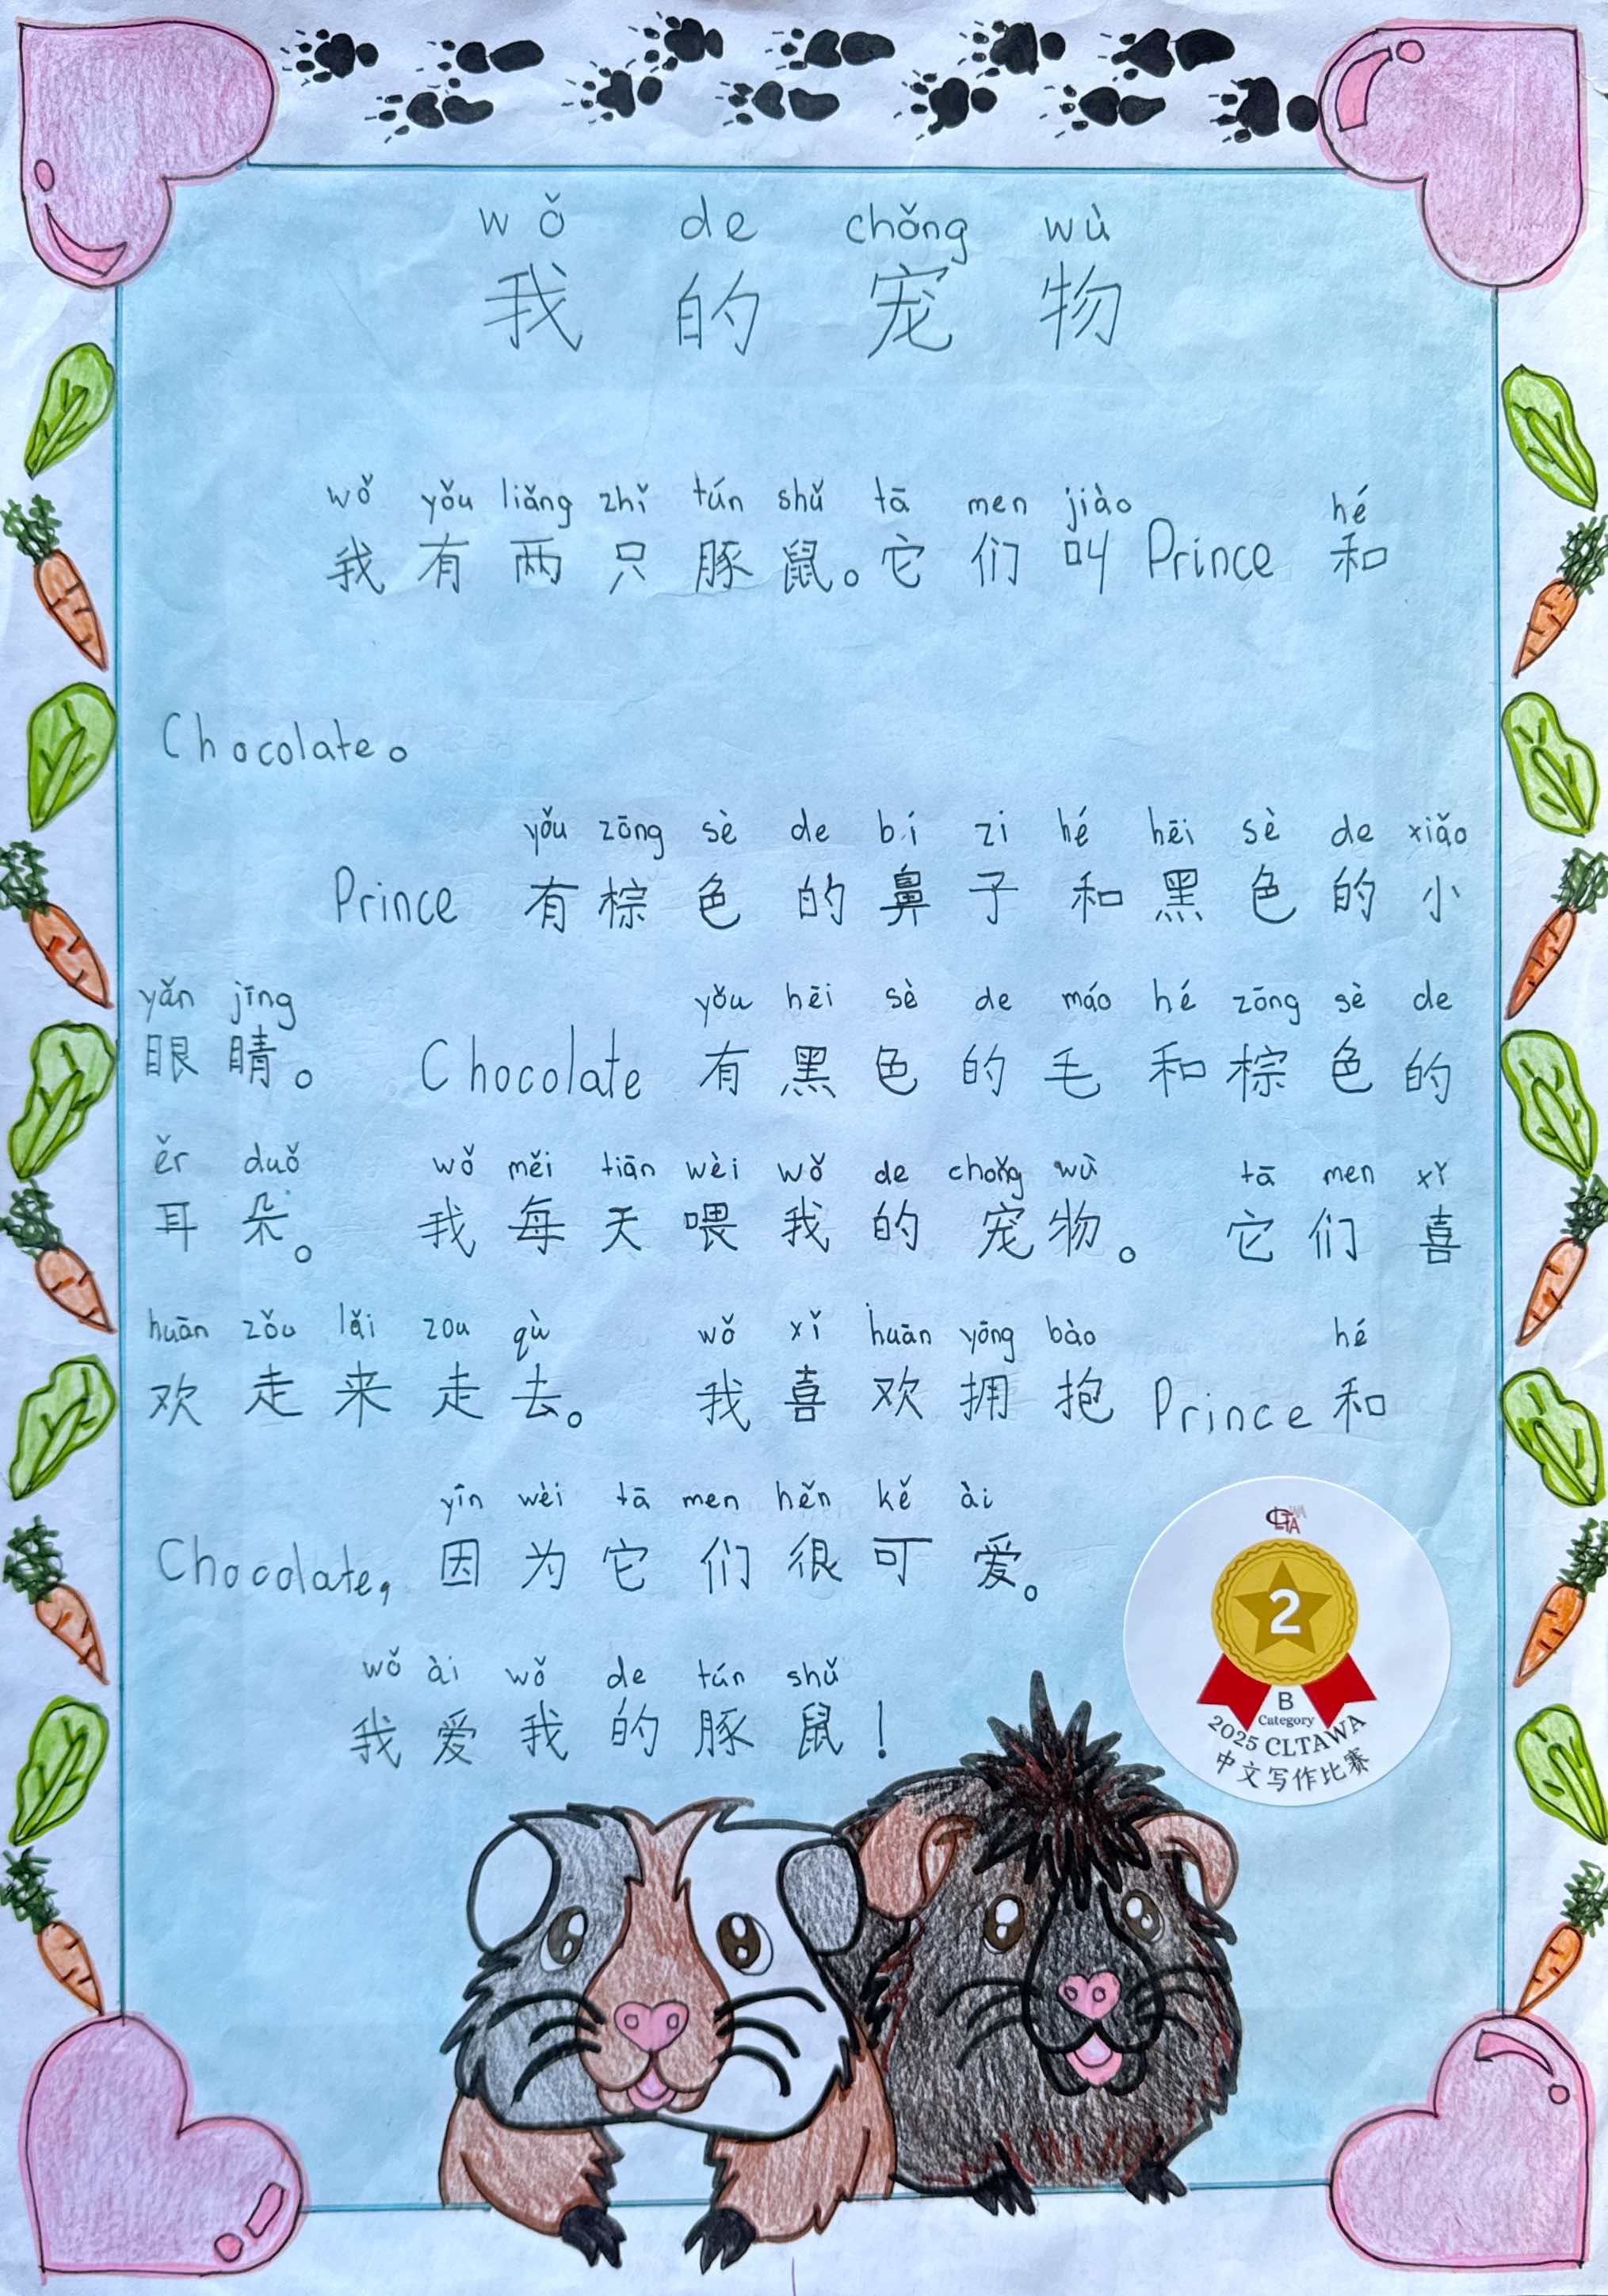 wǒ de chǒng wù
我 的 宠 物
wǒ yǒu liǎng zhǐ tún shǔ tā men jiào hé
我 有 两 只 豚 鼠。它 们 叫 Prince 和
Chocolate。
yǒu zōng sè de bí zi hé hēi sè de xiǎo
Prince 有 棕 色 的 鼻 子 和 黑 色 的 小
yǎn jīng yǒu hēi sè de máo hé zōng sè de
眼 睛。 Chocolate 有 黑 色 的 毛 和 棕 色 的
ěr duǒ wǒ měi tiān wèi wǒ de chǒng wù tā men xǐ
耳 朵。 我 每 天 喂 我 的 宠 物。 它 们 喜
huān zǒu lái zou qù wǒ xǐ huān yōng bào hé
欢 走 来 走 去。 我 喜 欢 拥 抱 Prince 和
yīn wèi tā men hěn kě ài
Chocolate, 因 为 它 们 很 可 爱。
wǒ ài wǒ de tún shǔ
我 爱 我 的 豚 鼠!
CLTAWA
2
B
Category
2025 CLTAWA
中文写作比赛